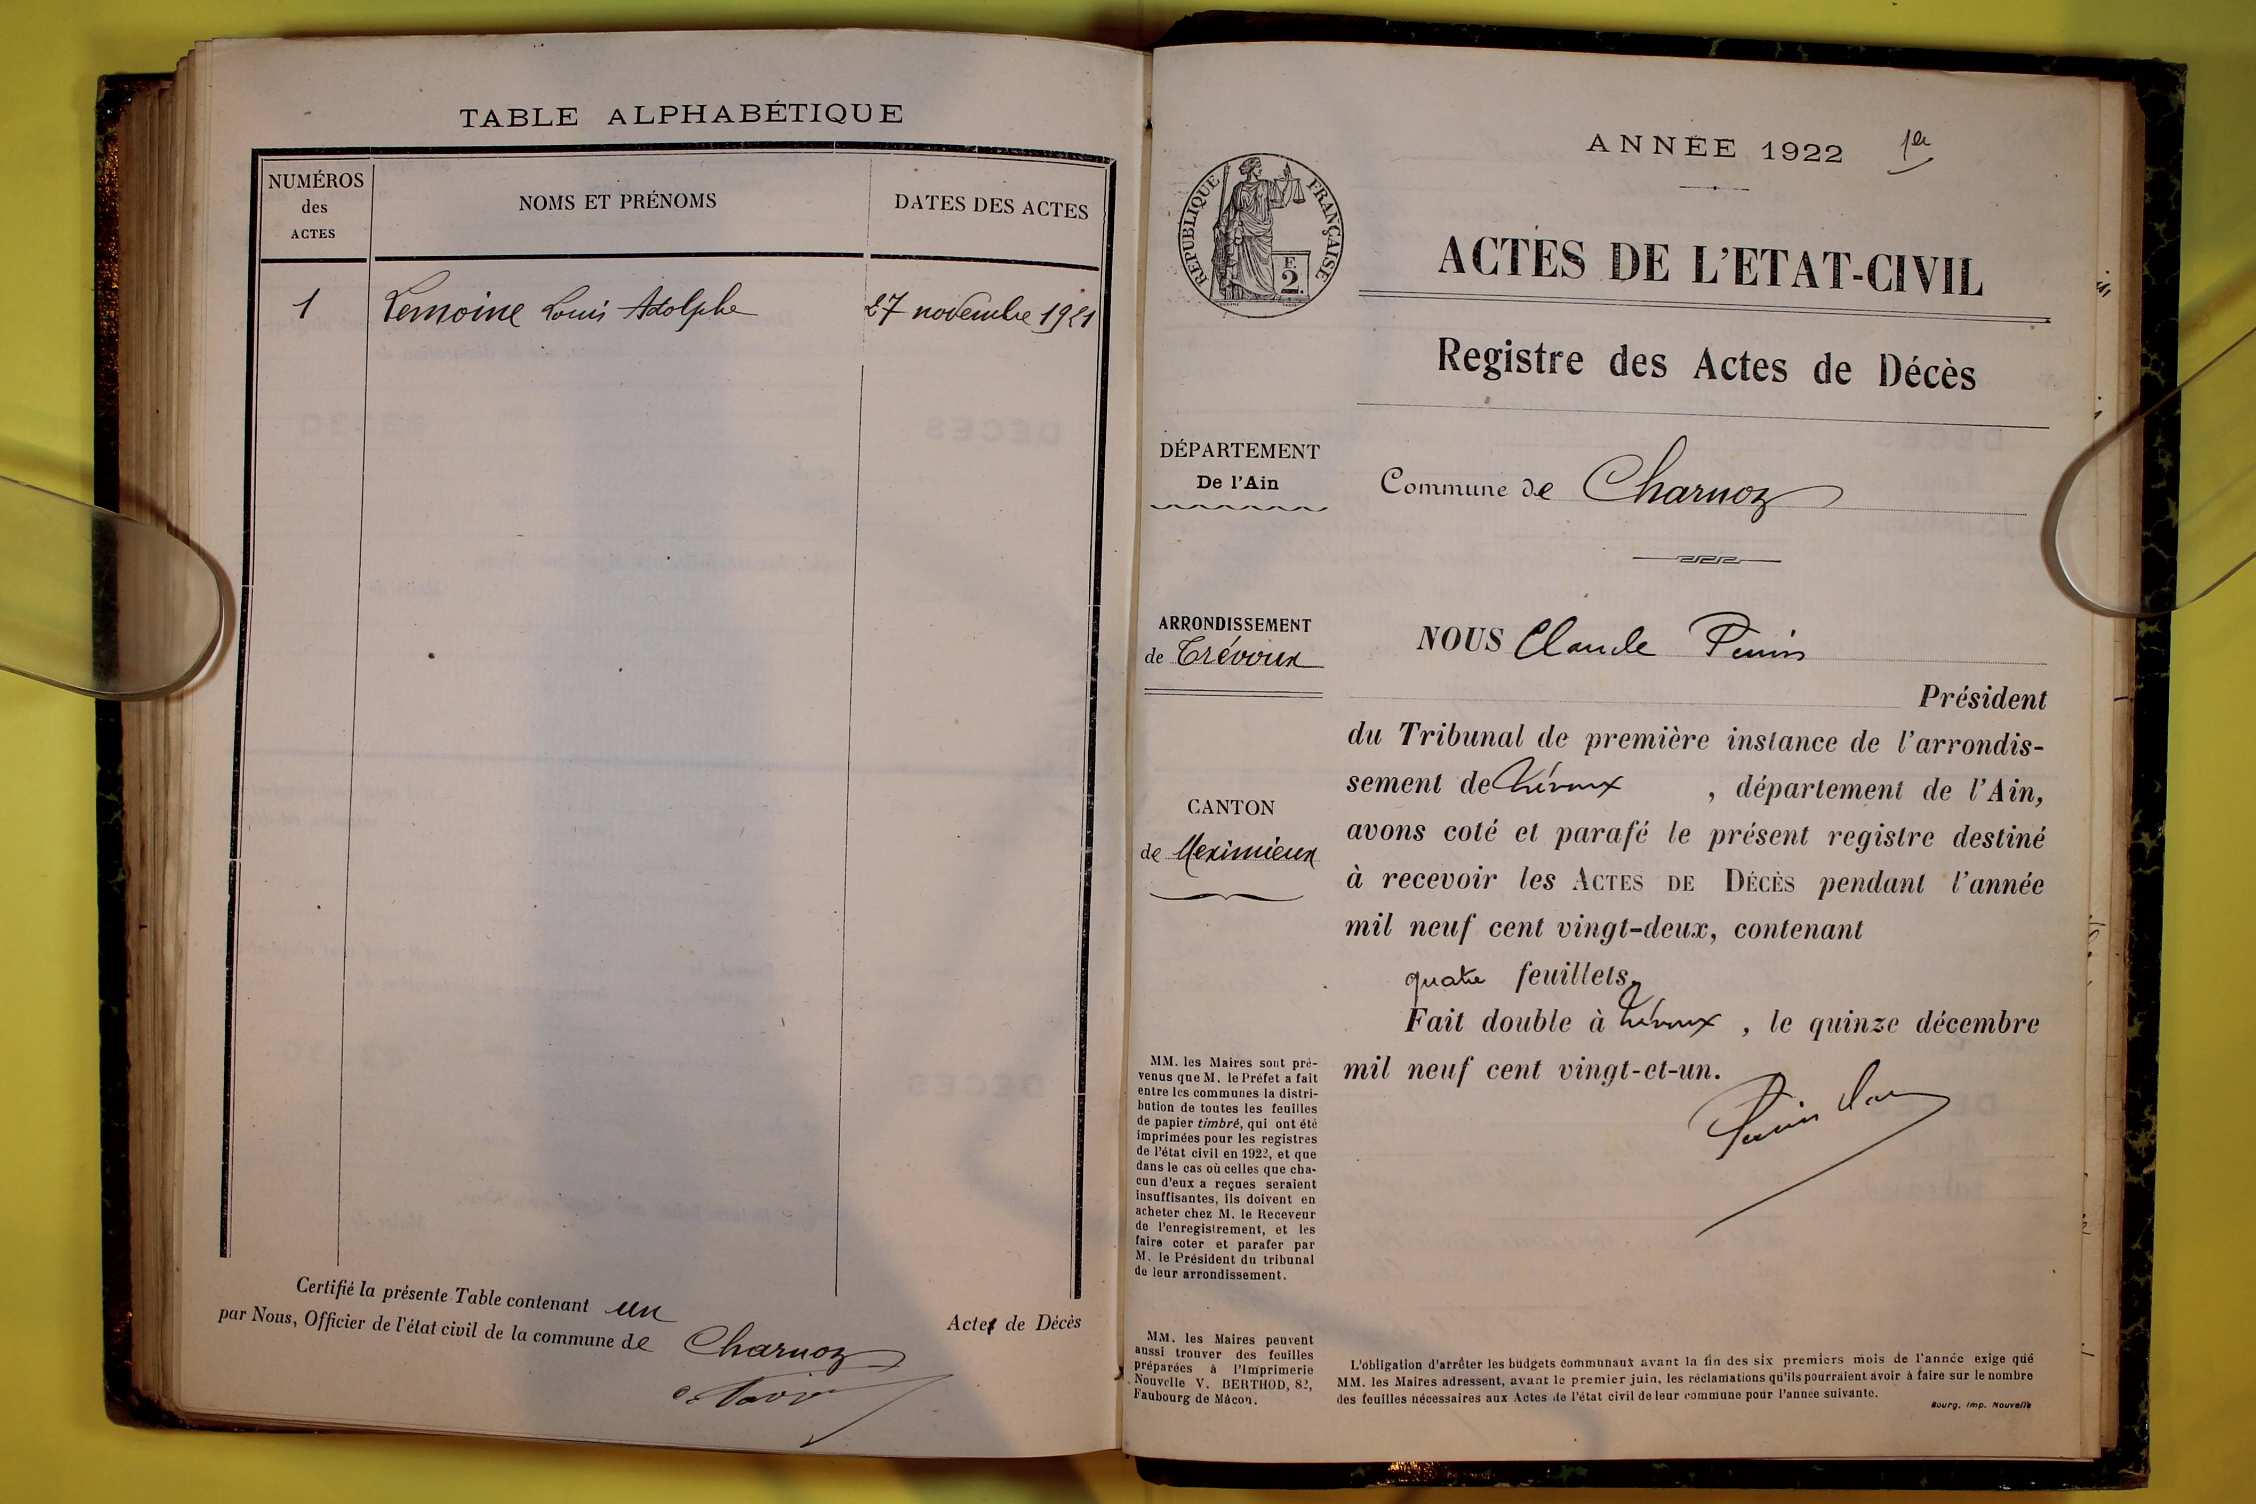 TABLE ALPHABÉTIQUE
NUMÉROS
des
ACTES
NOMS ET PRÉNOMS
DATES DES ACTES
1 Lemoine Louis Adolphe 27 novembre 1921
Certifié la présente Table contenant un
Actes de Décès
par Nous, Officier de l'état civil de la commune de Charnoz
ANNÉE 1922 1er
RÉPUBLIQUE FRANÇAISE
F.
2.
ACTES DE L'ETAT-CIVIL
Registre des Actes de Décès
DÉPARTEMENT
De l'Ain
Commune de Charnoz
ARRONDISSEMENT
de Trévoux
CANTON
de Meximieux
NOUS Claude
Président
du Tribunal de première instance de l'arrondis-
sement de Trévoux , département de l'Ain,
avons coté et parafé le présent registre destiné
à recevoir les ACTES DE DÉCÈS pendant l'année
mil neuf cent vingt-deux, contenant
quatre feuillets.
Fait double à Trévoux , le quinze décembre
mil neuf cent vingt-et-un.
MM. les Maires sont pré-
venus que M. le Préfet a fait
entre les communes la distri-
bution de toutes les feuilles
de papier timbré, qui ont été
imprimées pour les registres
de l'état civil en 1922, et que
dans le cas où celles que cha-
cun d'eux a reçues seraient
insuffisantes, ils doivent en
acheter chez M. le Receveur
de l'enregistrement, et les
faire coter et parafer par
M. le Président du tribunal
de leur arrondissement.
MM. les Maires peuvent
aussi trouver des feuilles
préparées à l'Imprimerie
Nouvelle V. BERTHOD, 82,
Faubourg de Mâcon.
L'obligation d'arrêter les budgets communaux avant la fin des six premiers mois de l'année exige que
MM. les Maires adressent, avant le premier juin, les réclamations qu'ils pourraient avoir à faire sur le nombre
des feuilles nécessaires aux Actes de l'état civil de leur commune pour l'année suivante.
Bourg, Imp. Nouvelle